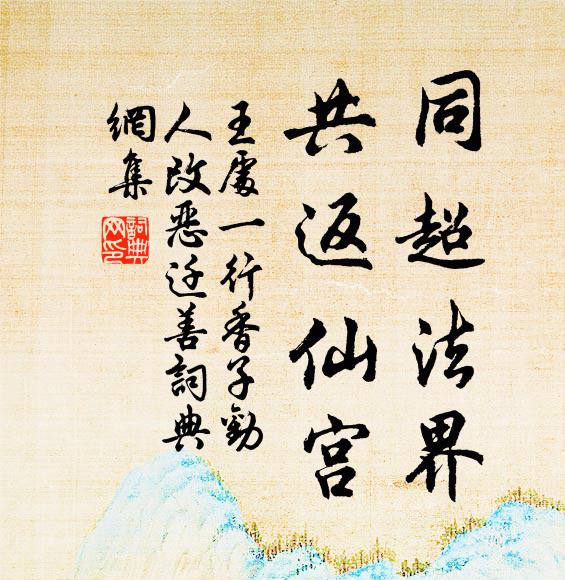 同超法界
共返仙宫
王處一行香子勸
人改惡迁善詞典
網集
詞典
网印